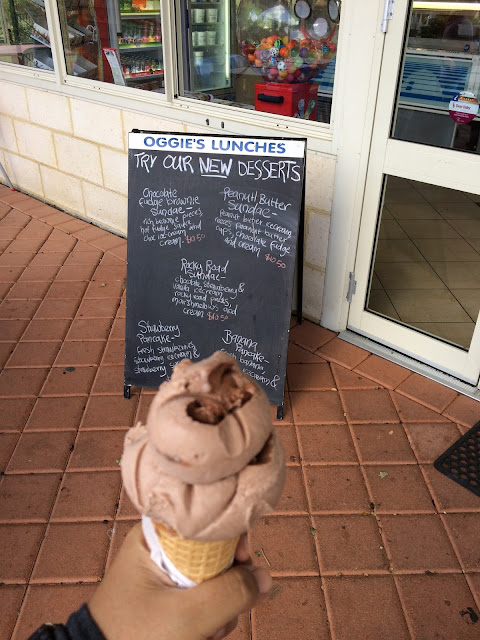 OGGIE'S LUNCHES
TRY OUR NEW DESSERTS
Chocolate
fudge brownie
Sundae -
rich brownie pieces,
hot fudge sauce,
choc ice cream and
cream. $10.50
Peanut Butter
Sundae -
Peanut butter icecream
reeces peanut butter
cups, chocolate fudge
and cream $10.50
Rocky Road
Sundae -
chocolate, strawberry &
vanilla icecream
rocky road pieces,
marshmallows and
cream $10.50
Strawberry
Pancake -
fresh strawberries,
strawberry icecream &
strawberry
Banana
Pancake -
fresh banana
icecream &